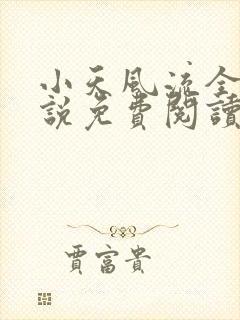 小天風流全
説免費閱讀
賈富貴